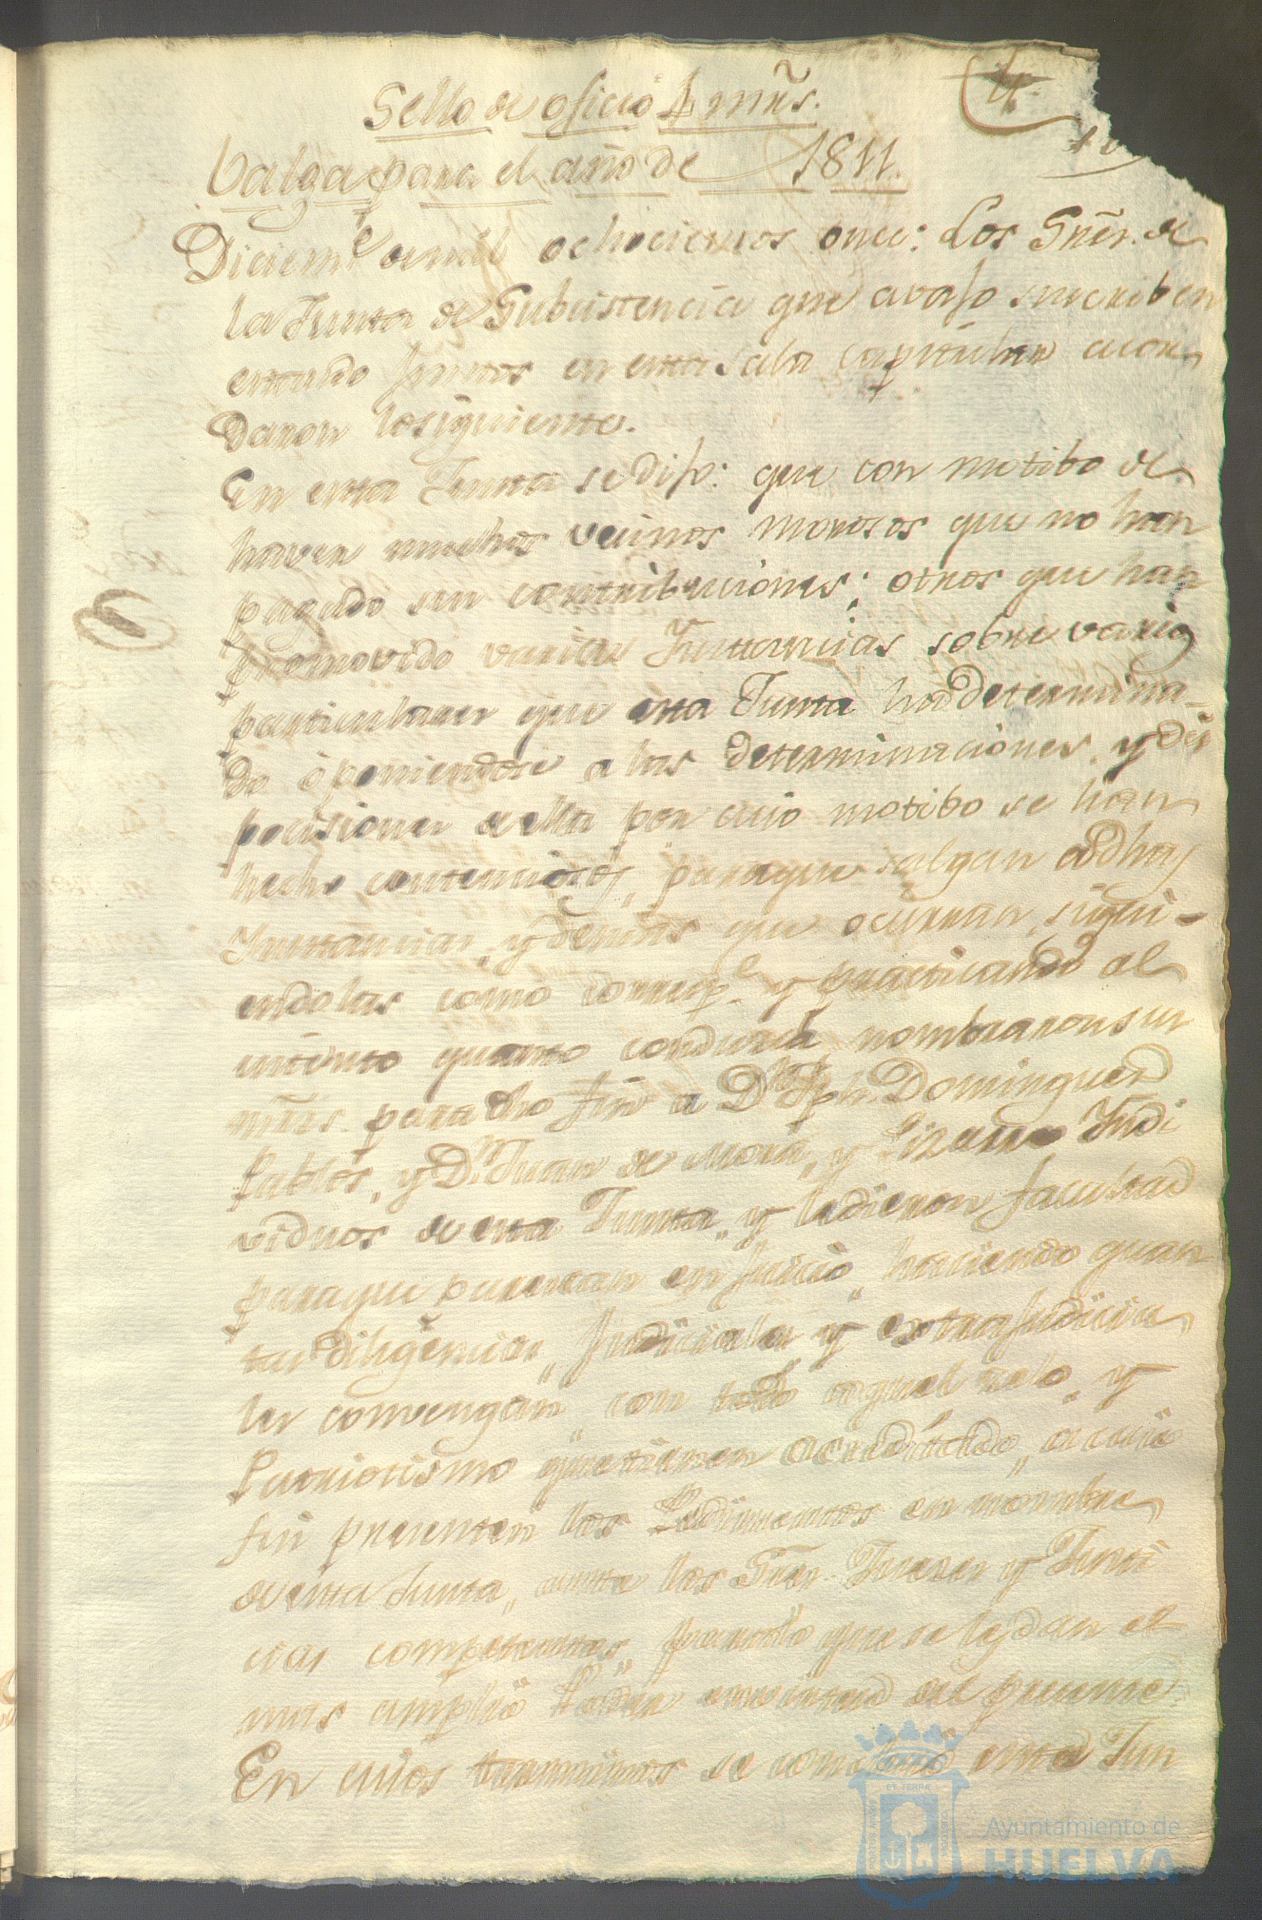 Sello de oficio 4 mñs.
Valga para el año de 1811.
Diciem.e de mil ochocientos once: Los Sres. de
la Junta de Subsistencia que avajo suscriben
estando juntos en esta Sala capitular acor
daron losiguiente.
En esta Junta se dijo: que con motibo de
haver muchos vecinos morosos que no han
pagado sus contribuciones; otros que han
promovido varias Instancias sobre varios
particulares que esta Junta ha determina-
do oponiendose a las determinaciones, y dis
pocisiones de ella por cuio motibo se han
hecho contenciosos, paraque salgan a dhas
Instancias, y demas que ocurran, sigui-
endolas como corresp.e y practicando al
intento quanto conduzca nombraron sus
mrñs. para dho fin a Dn. Jph. Dominguez
Pablos, y Dn. Juan de Mora, y Lizana Yndi
viduos de esta Junta, y le dieron facultad
paraque parescan en juicio, haciendo quan
tas diligencias judiciales y extrajudicia
les convengan, con todo aquel zelo, y
Patriotismo que tienen acreditado, a cuio
fin presenten los Pedimentos en nombre
de esta Junta, ante los Sres. Jueces y Justi
cias competentes, para lo que se les dan el
mas amplio Poder en virtud del presente
En cuios terminos se concluió esta Jun
Ayuntamiento de
HUELVA